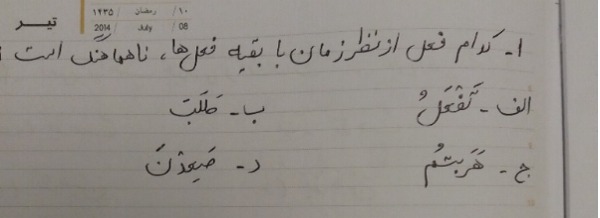 ۱۰/ رمضان /۱۴۳۵
2014 / July / 08
تیر
۱- کدام فعل از نظر زمان با بقیه فعل‌ها، ناهماهنگ است؟
الف - تَفْعَلُ ب - طَلَبَ
ج - هَرَبتُم د - صَعِدْنَ